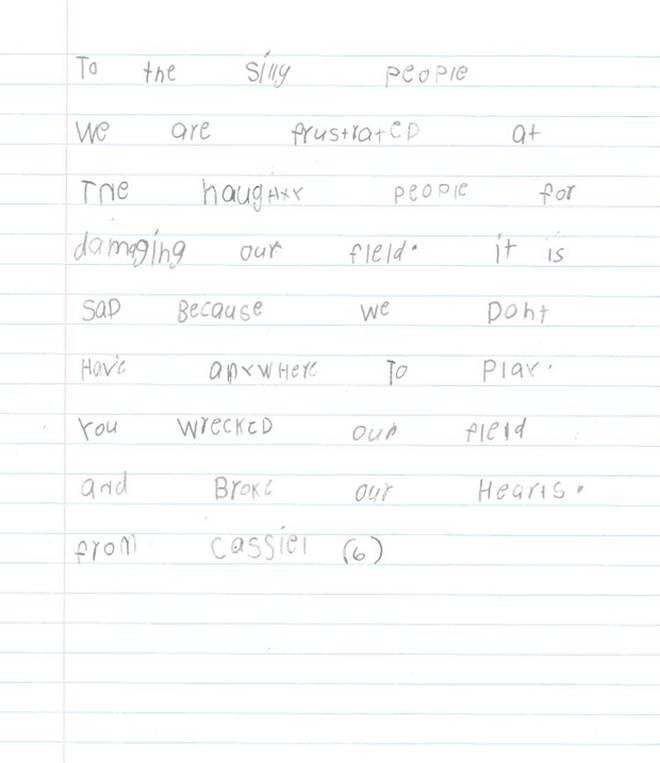 To the silly people
We are frustrated at
The naughty people for
damaging our field. it is
Sad Because we Dont
Have anywhere To Play.
You wrecked our field
and Broke our Hearts.
from Cassiel (6)